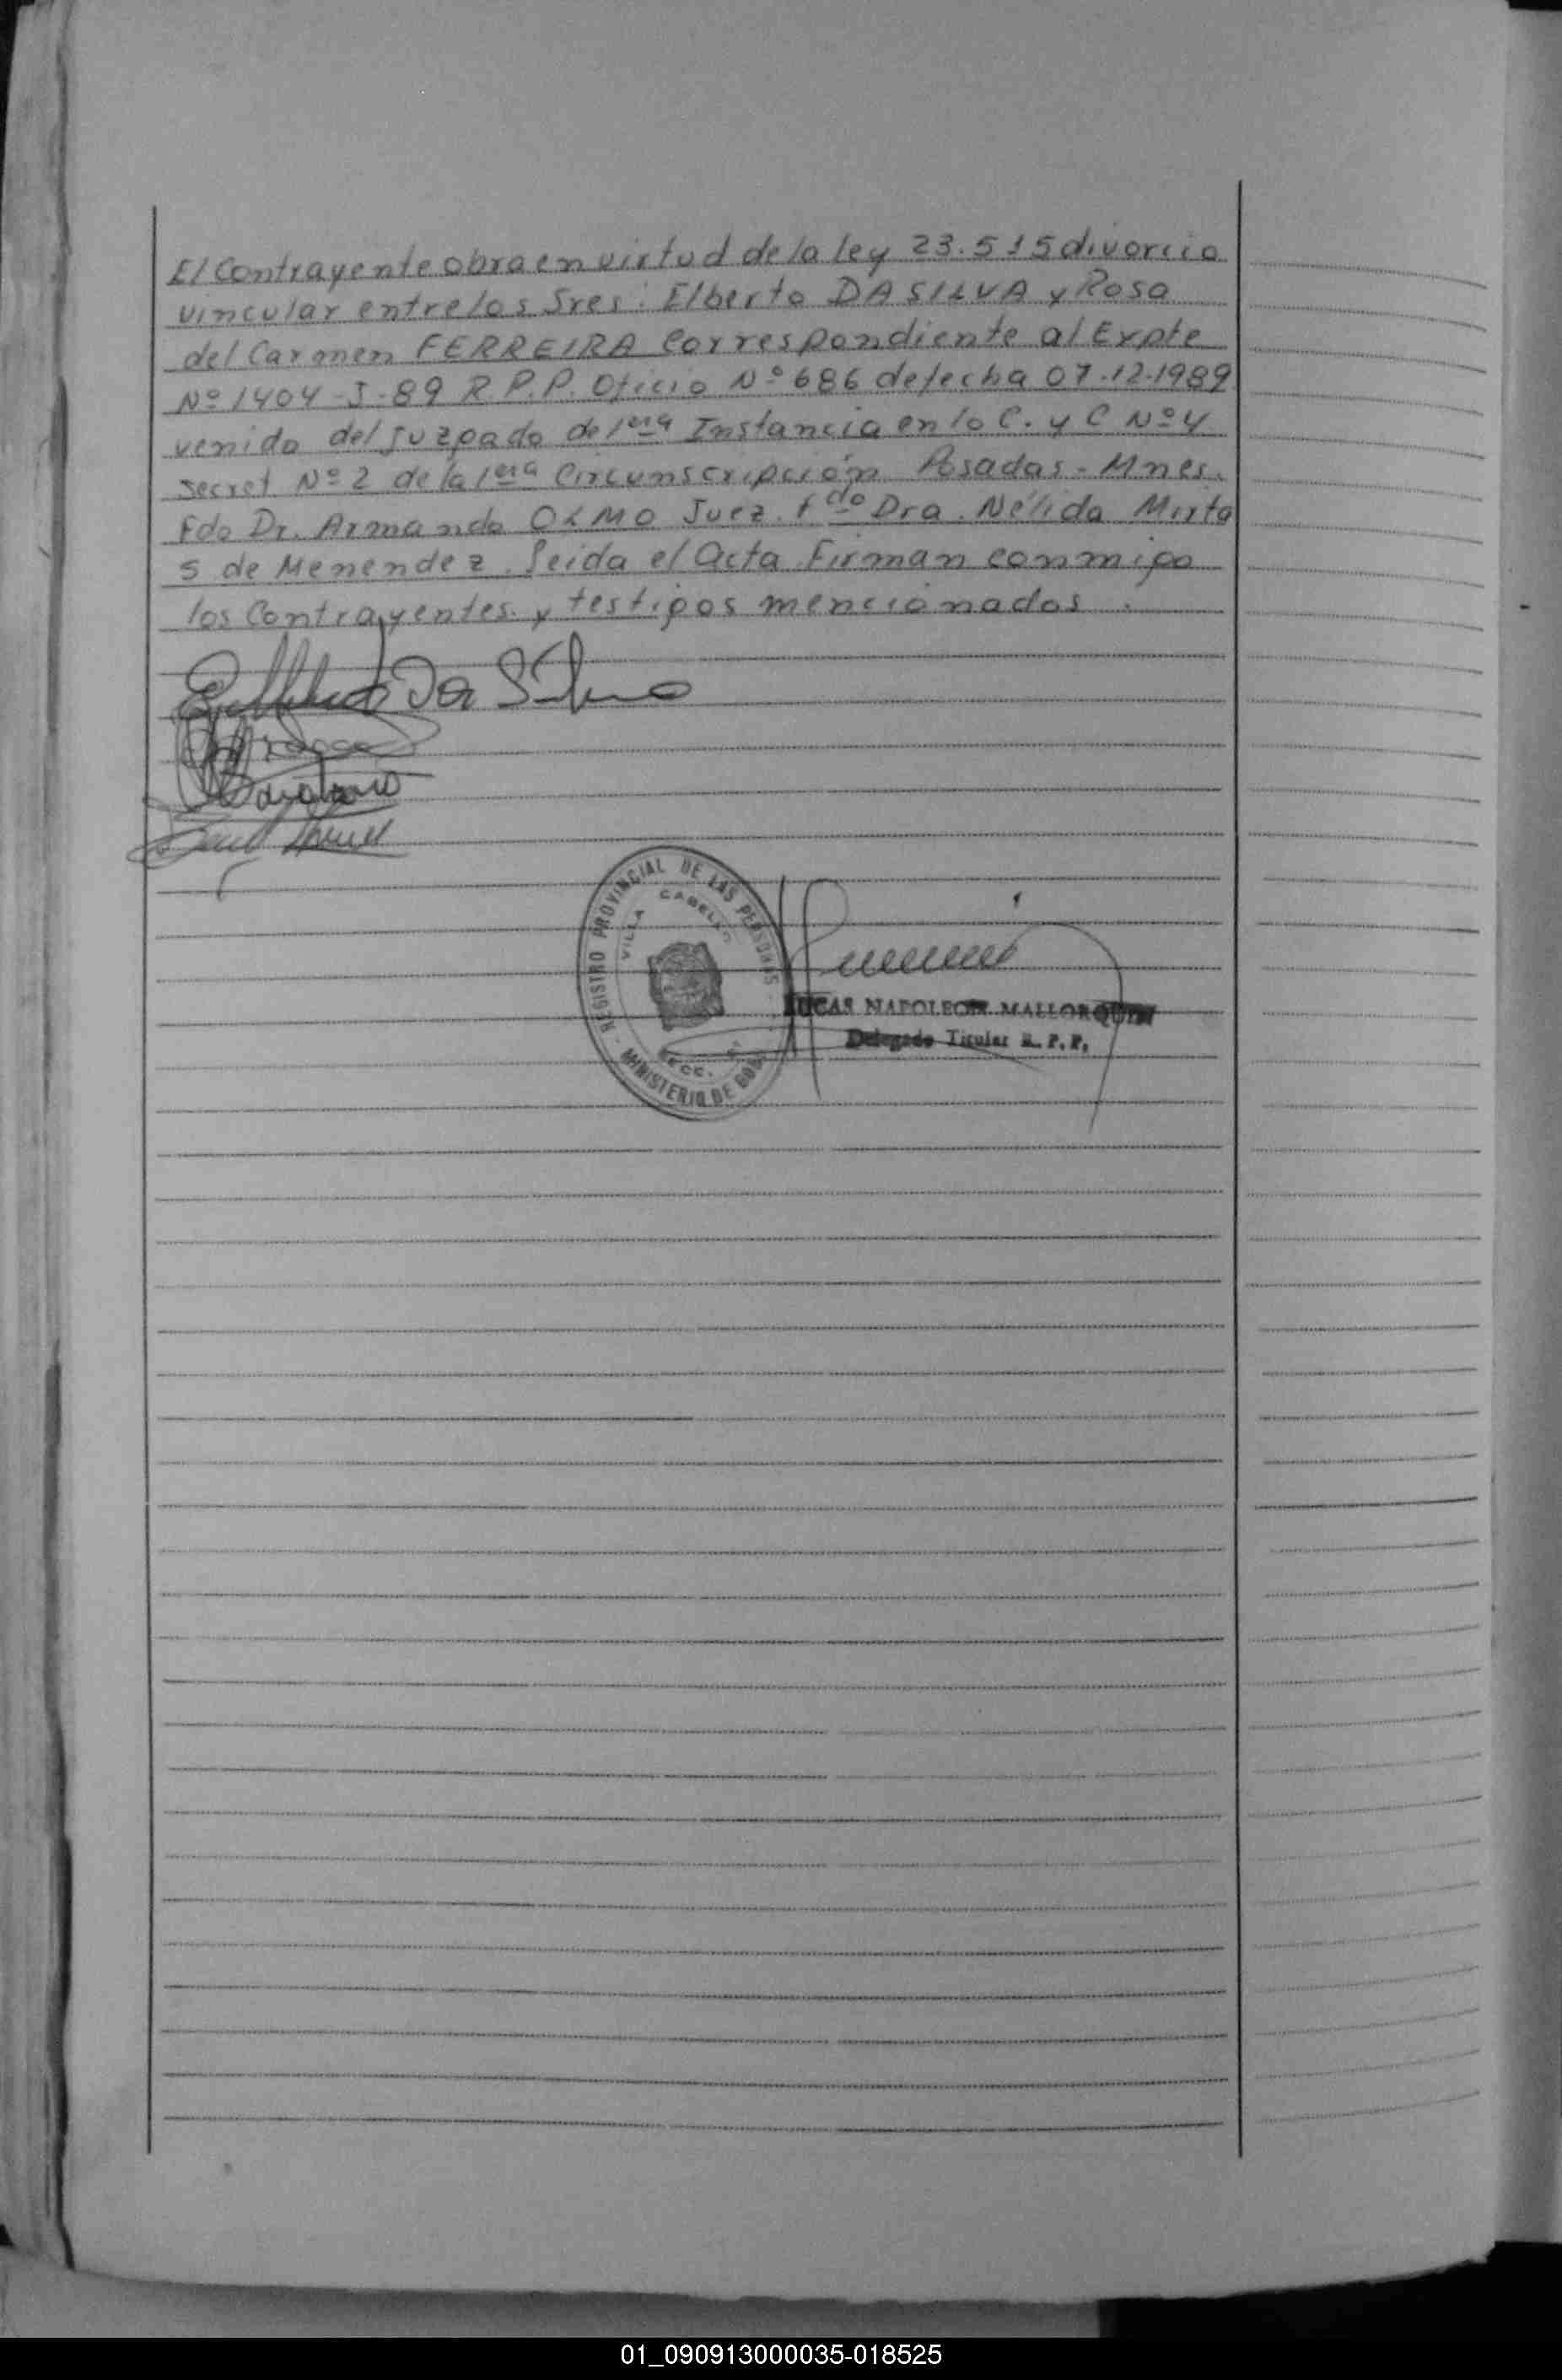 El Contrayente obra en virtud de la ley 23.515 divorcio
vincular entre los Sres: Elberto DA SILVA y Rosa
del Carmen FERREIRA Correspondiente al Expte
Nº 1404-J-89 R.P.P. Oficio Nº 686 de fecha 07-12-1989
venido del Juzgado de 1era Instancia en lo C. y C Nº 4
secret Nº 2 de la 1era Circunscripción Posadas - Mnes.
Fdo Dr. Armando OLMO Juez. fdo Dra. Nélida Mirta
S de Menendez. Leida el Acta Firman conmigo
los Contrayentes y testigos mencionados.
Da Silva
REGISTRO PROVINCIAL DE LAS PERSONAS
VILLA CABELLO
SECC.
MINISTERIO DE GOB
LUCAS NAPOLEON MALLORQUIN
Delegado Titular R. P. P.
01_090913000035-018525